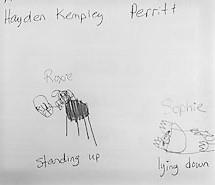 Hayden Kempley Perritt
Roxie
Sophie
standing up
lying down